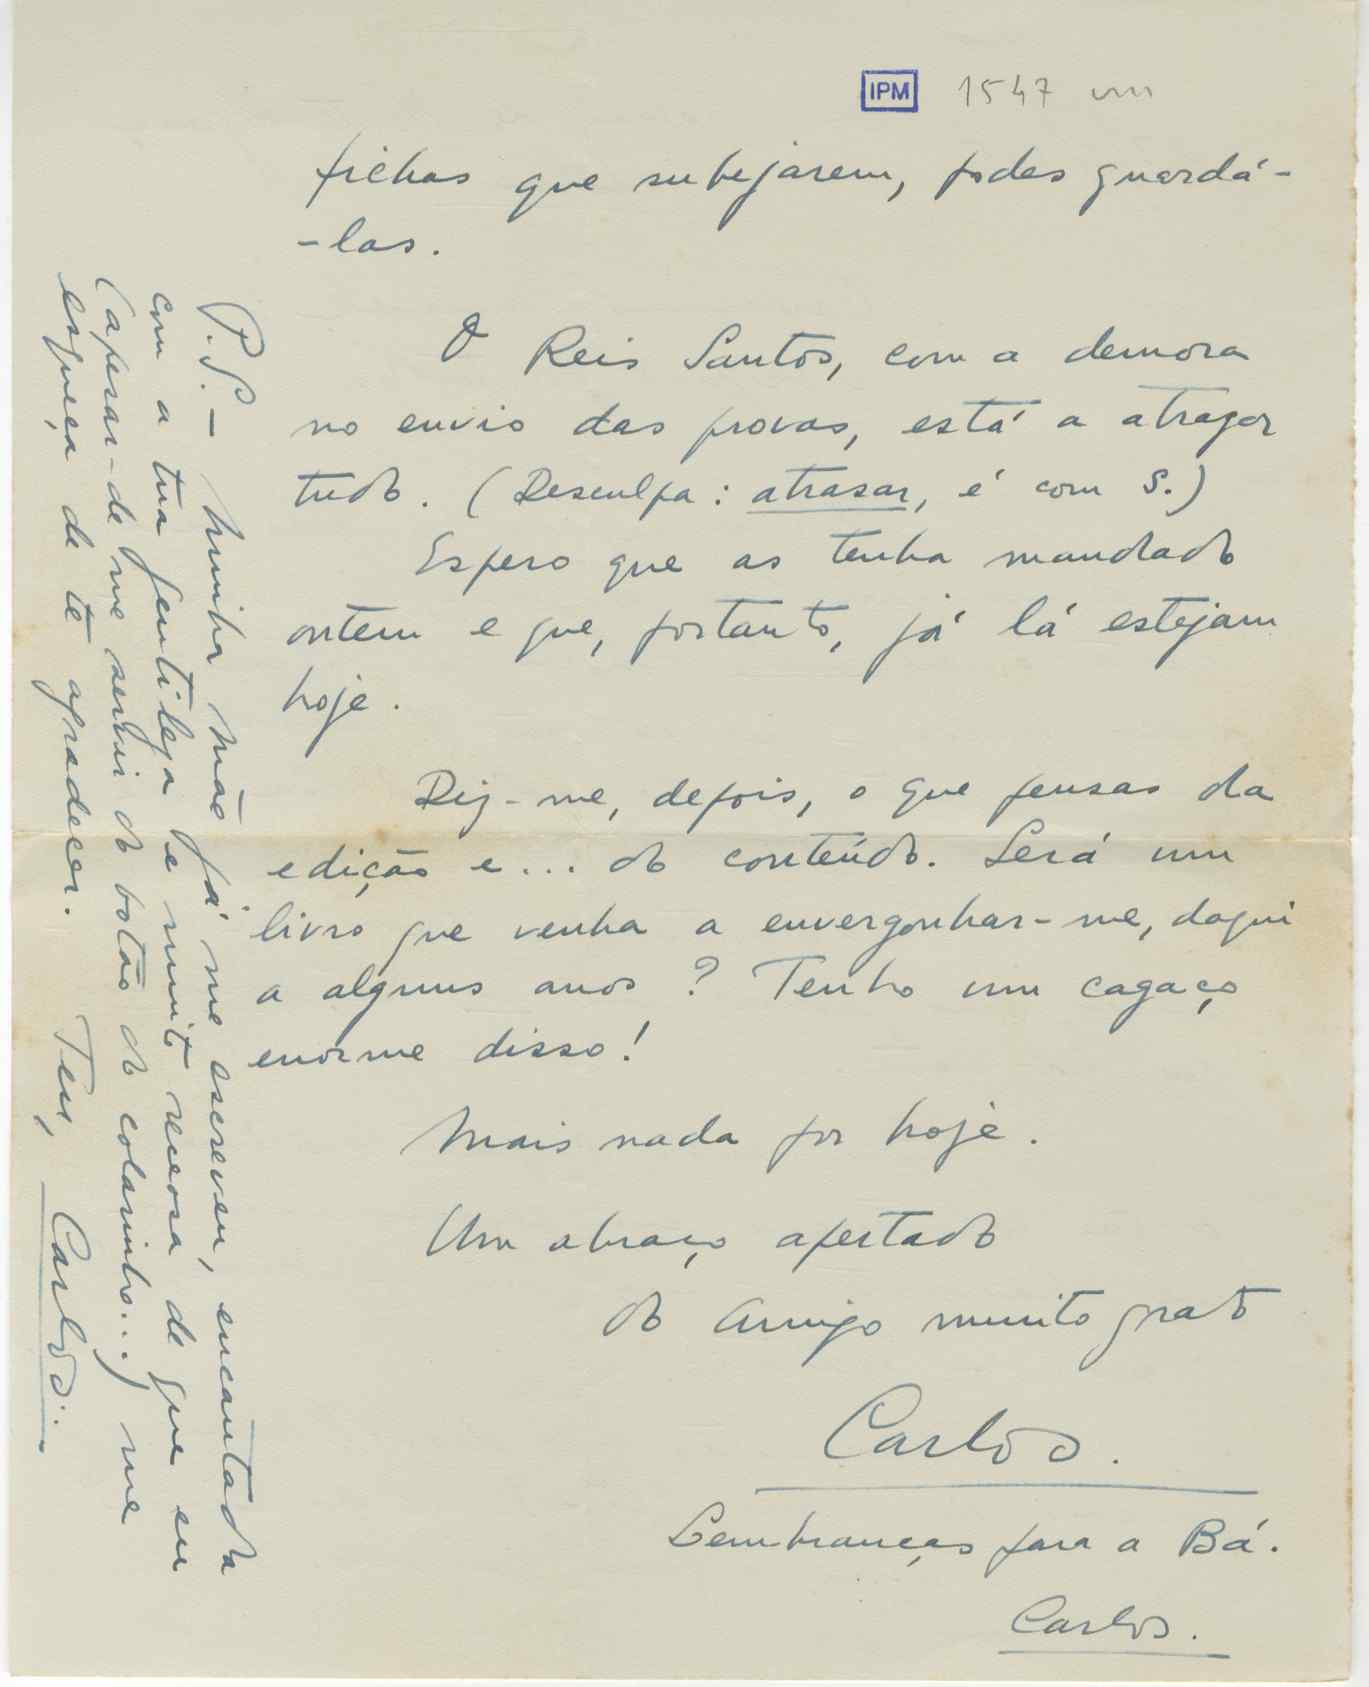 IPM 1547 vm
fichas que subejarem, podes guardá-
-las.
O Reis Santos, com a demora
no envio das provas, está a atrazar
tudo. (Desculpa: atrasar, é com S.)
Espero que as tenha mandado
ontem e que, portanto, já lá estejam
hoje.
Diz-me, depois, o que pensas da
edição e... do conteúdo. Será um
livro que venha a envergonhar-me, daqui
a alguns anos? Tenho um cagaço
enorme disso!
Mais nada por hoje.
Um abraço apertado
do amigo muito grato
Carlos.
Lembranças para a Bá.
Carlos.
P.S. - Minha mão já me escreveu, encantada
com a tua gentileza e muito receosa de que eu
(apesar-de me servir do botão do colarinho...) me
esqueça de te agradecer. Teu, Carlos.